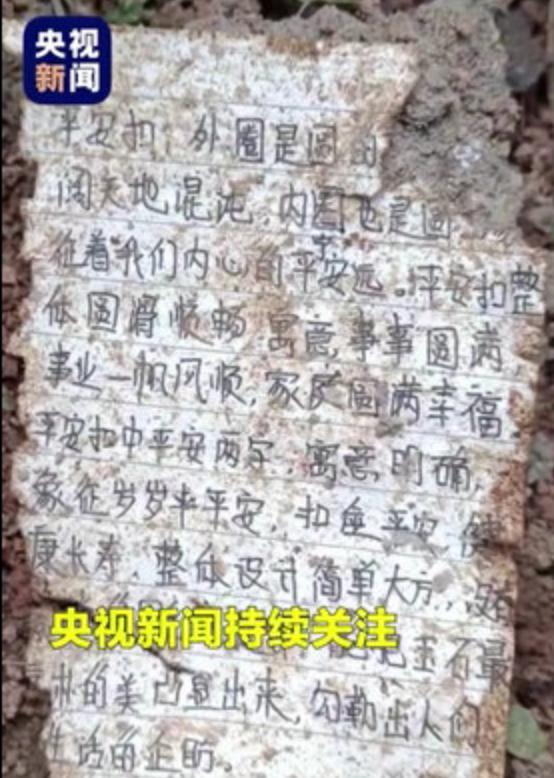 央视
新闻
平安扣，外圈是圆的
阔天地混沌，内圈也是圆
征着我们内心的平安远。平安扣整
体圆滑顺畅寓意，事事圆满
事业一帆风顺，家庭圆满幸福。
平安扣中平安两字，寓意明确，
象征岁岁平平安，扣住平安，健
康长寿，整体设计简单大方，
央视新闻持续关注
把玉石最
的美凸显出来，勾勒出人们
生活的企盼。